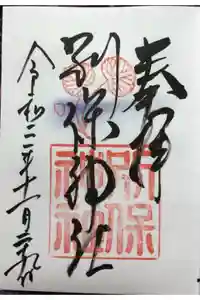 奉拝
別保神社
別保
神社
令和二年十一月